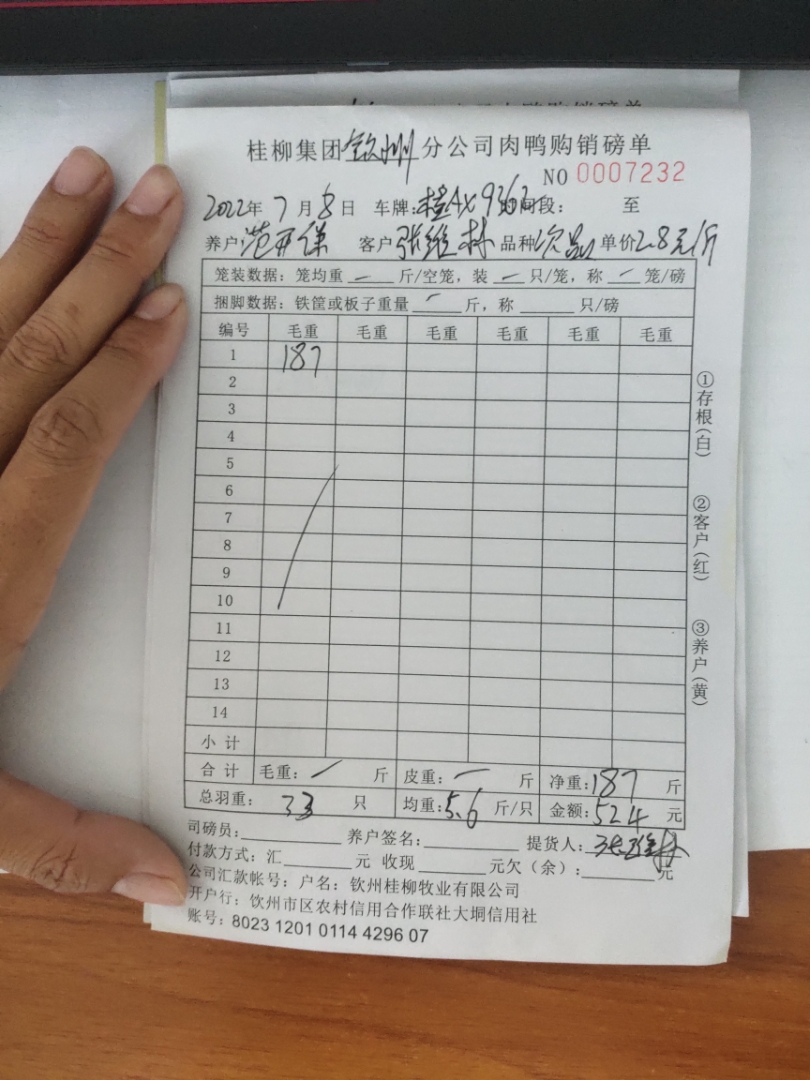 桂柳集团钦州分公司肉鸭购销磅单
NO 0007232
2022年 7 月 8 日 车牌:桂AX9362 时间段: 至
养户 范开保 客户 张维林 品种 次品 单价 2.8元/斤
笼装数据：笼均重 — 斤/空笼，装 — 只/笼，称 — 笼/磅
捆脚数据：铁筐或板子重量 — 斤，称 只/磅
编号 毛重 毛重 毛重 毛重 毛重 毛重
1 187
2
3
4
5
6
7
8
9
10
11
12
13
14
小 计
合 计 毛重: — 斤 皮重: — 斤 净重:187 斤
总羽重: 33 只 均重:5.6 斤/只 金额:524 元
司磅员: 养户签名: 提货人: 张维林
付款方式: 汇 元 收现 元欠（余）: 元
公司汇款帐号: 户名: 钦州桂柳牧业有限公司
开户行: 钦州市区农村信用合作联社大垌信用社
账号: 8023 1201 0114 4296 07
①存根(白)
②客户(红)
③养户(黄)